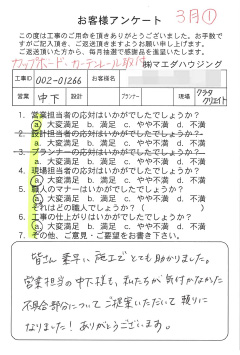 お客様アンケート 3月①
この度は工事のご用命を頂きありがとうございました。お手数で
すがご記入頂き、ご返送頂きますようお願い申し上げます。
ご返送頂いた方から、毎月抽選で感謝品を進呈いたします。
カップボード・カーテンレール取付 ㈱マエダハウジング
工事ID 002-01266 お客様名
営業 中下 設計 プランナー 現場 クラタクリエイト
1. 営業担当者の応対はいかがでしたでしょうか?
a) 大変満足 b) 満足 c) やや不満 d) 不満
2. 設計担当者の応対はいかがでしたでしょうか?
a) 大変満足 b) 満足 c) やや不満 d) 不満
3. プランナーの応対はいかがでしたでしょうか?
a) 大変満足 b) 満足 c) やや不満 d) 不満
4. 現場担当者の応対はいかがでしたでしょうか?
a) 大変満足 b) 満足 c) やや不満 d) 不満
5. 職人のマナーはいかがでしたでしょうか?
a) 大変満足 b) 満足 c) やや不満 d) 不満
それはどの職人でしょうか? ( )
6. 工事の仕上がりはいかがでしたでしょうか?
a) 大変満足 b) 満足 c) やや不満 d) 不満
7. その他、ご意見・ご要望をお書き下さい。
皆さん 素早い施工でとても助かりました。
営業担当の中下様も、私たちが気付かなかった
不具合部分についてご提案いただいて 頼りに
なりました! ありがとうございます。